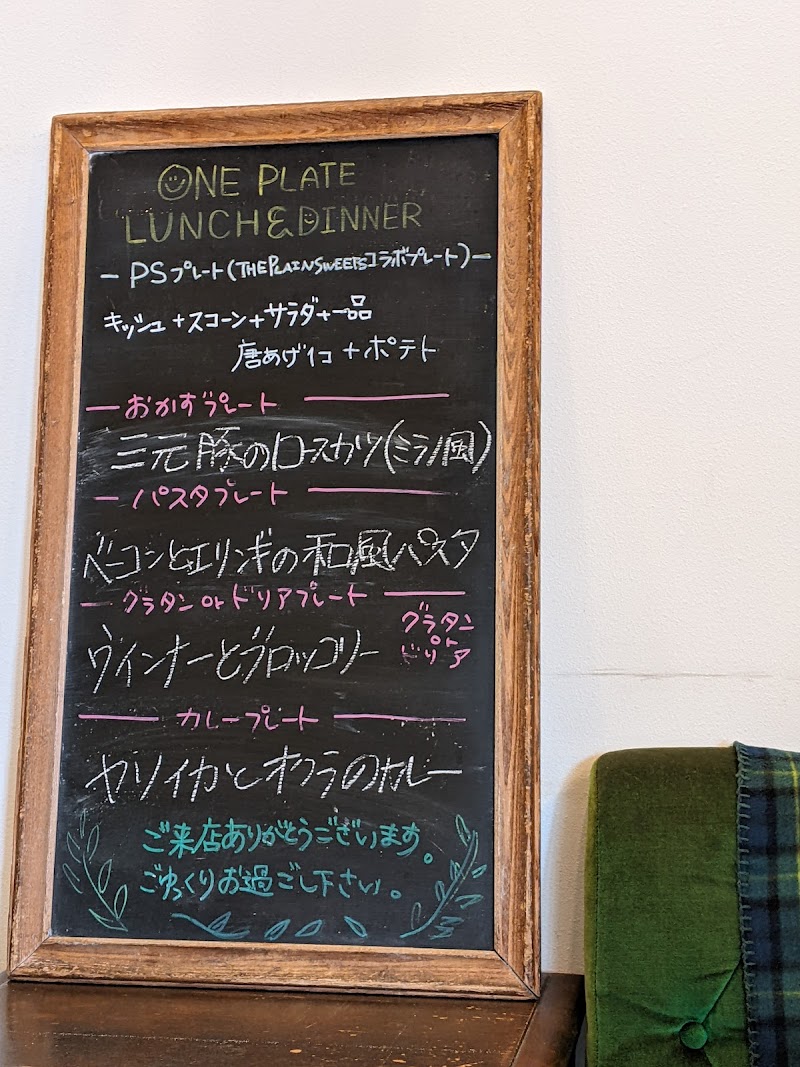 ONE PLATE
LUNCH&DINNER
ー PSプレート(THE PLAIN SWEETSコラボプレート)ー
キッシュ+スコーン+サラダ+一品
唐あげ1コ+ポテト
おかずプレート
三元豚のロースカツ(ミラノ風)
パスタプレート
ベーコンとエリンギの和風パスタ
グラタン or ドリアプレート
ウインナーとブロッコリー
グラタン
or
ドリア
カレープレート
ヤリイカとオクラのカレー
ご来店ありがとうございます。
ごゆっくりお過ごし下さい。